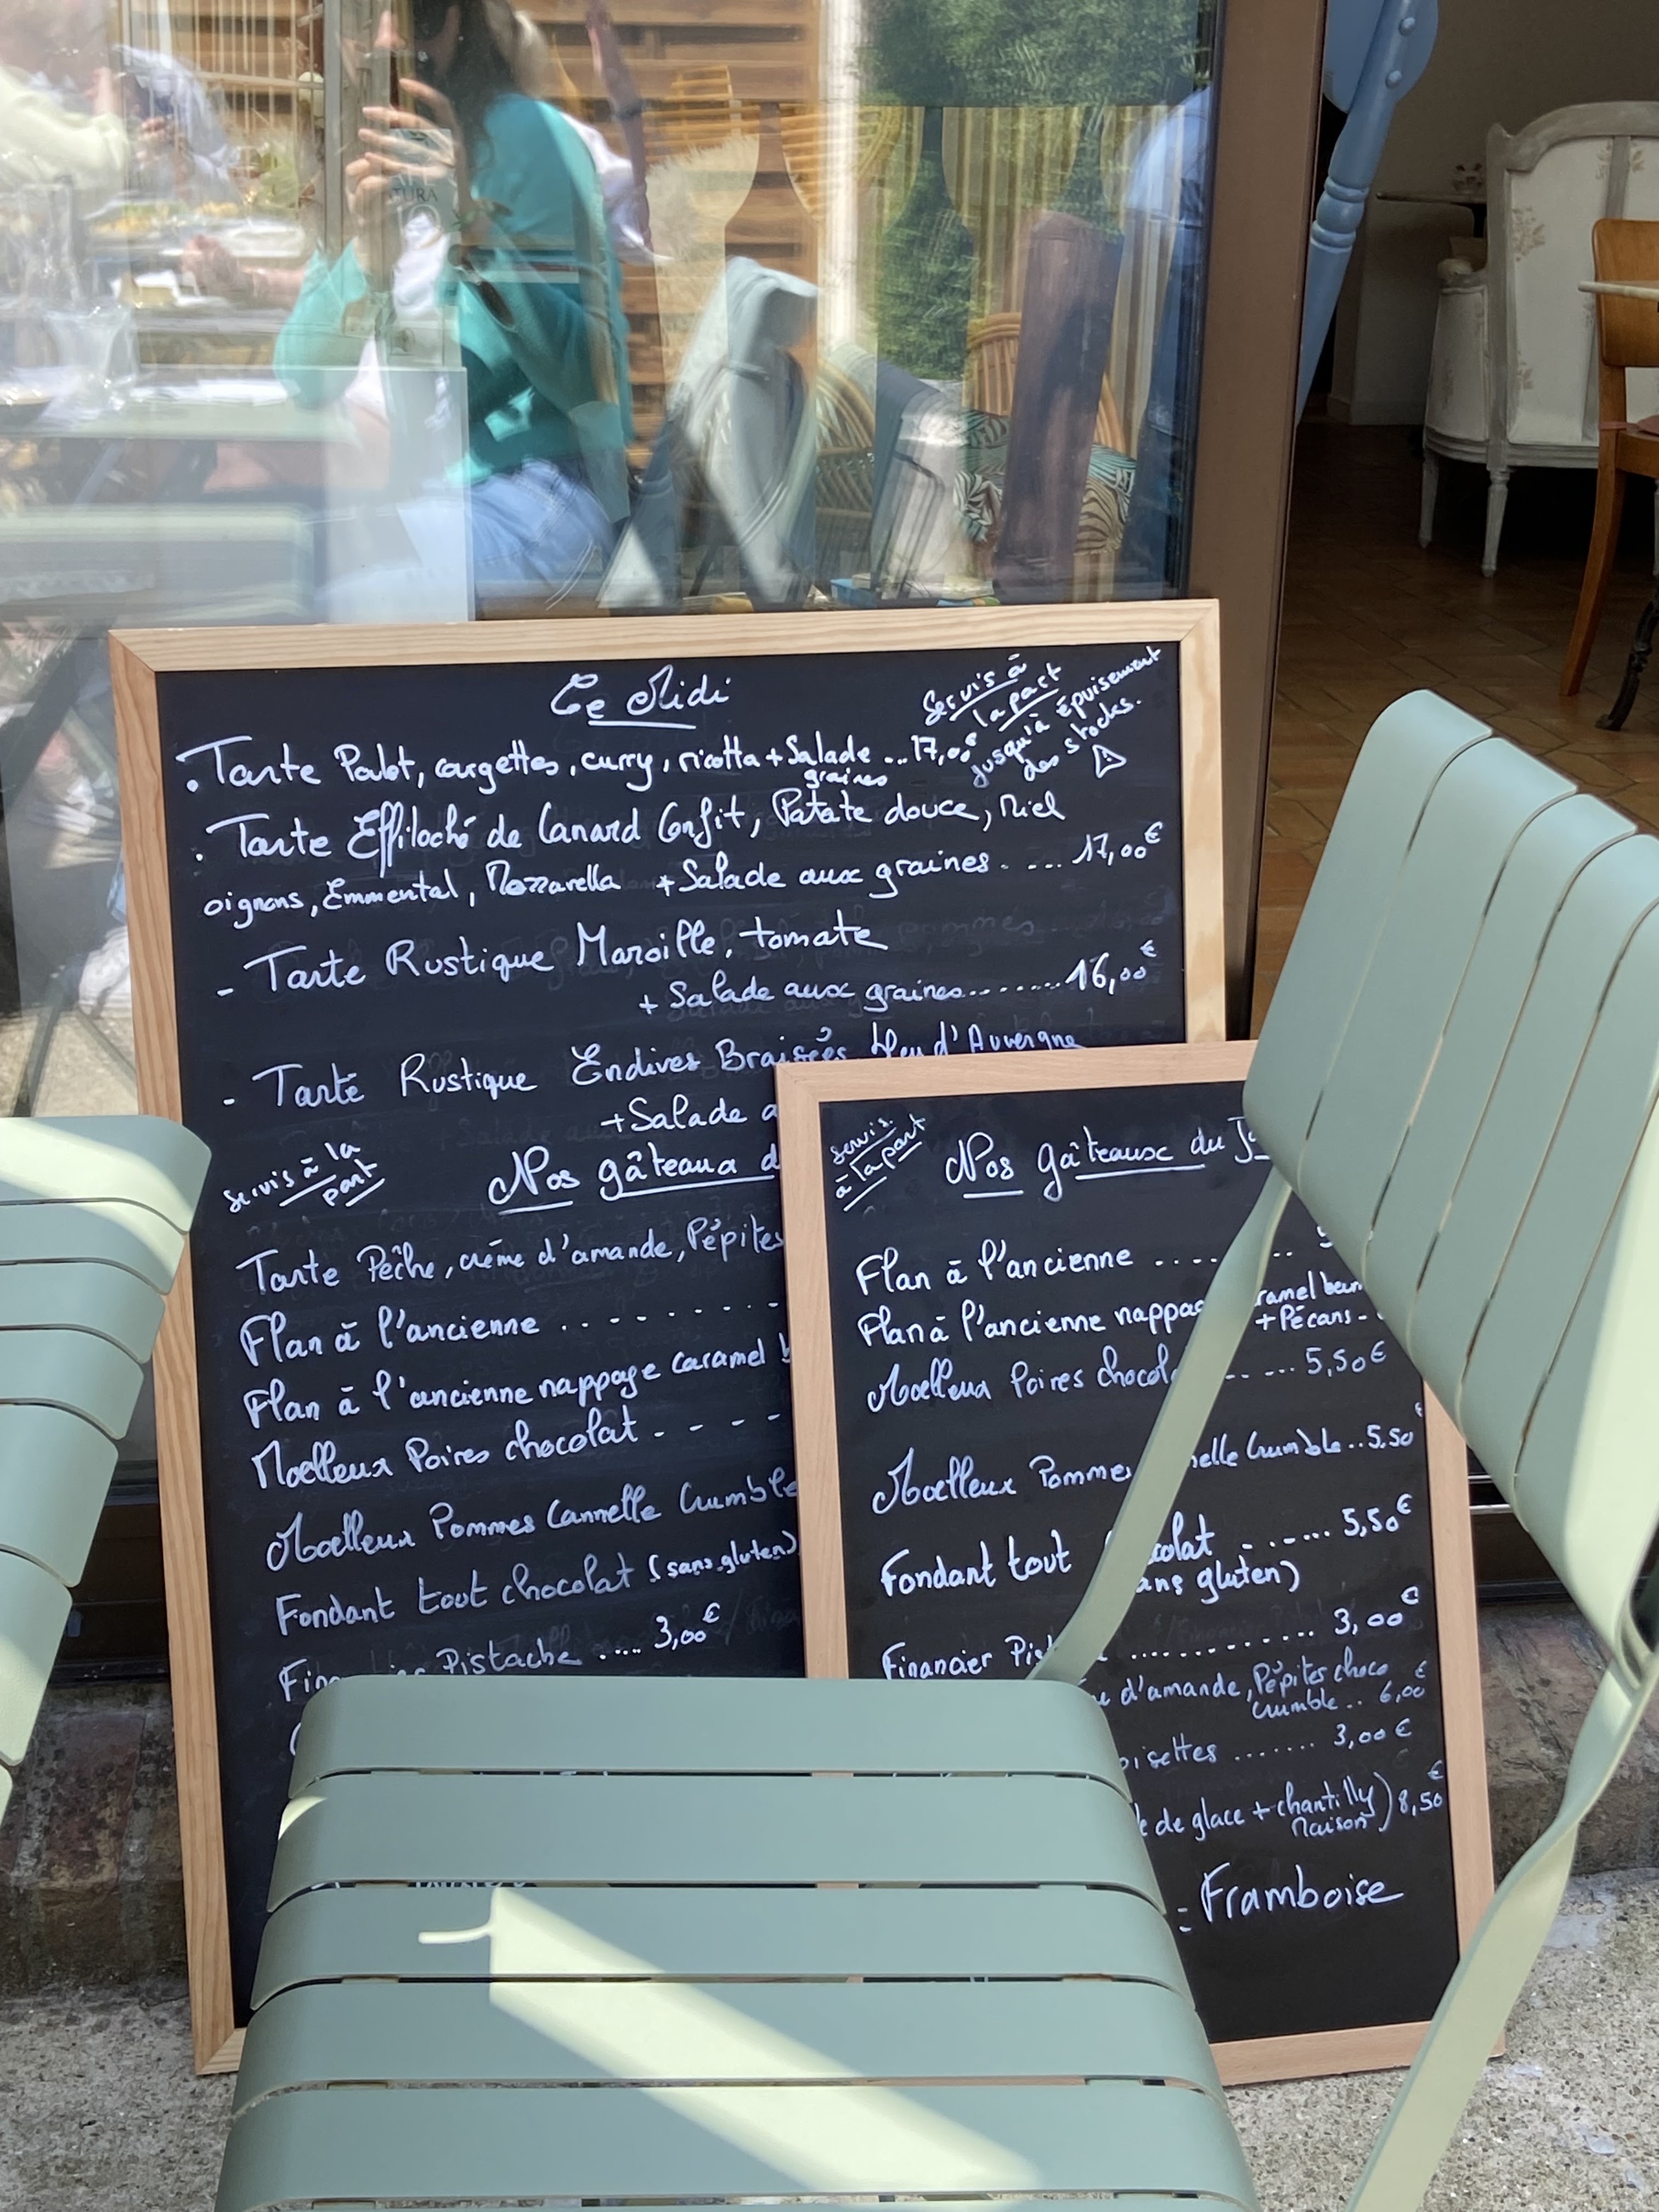 Ce Midi
Servis à
la part
jusqu'à épuisement
des stocks.
. Tarte Poulet, courgettes, curry, ricotta + Salade ... 17,00€
graines
. Tarte Effiloché de Canard Confit, Patate douce, Miel
oignons, Emmental, Mozzarella + Salade aux graines . ... 17,00€
- Tarte Rustique Maroille, tomate
+ Salade aux graines........ 16,00€
- Tarte Rustique Endives Braisées bleu d'Auvergne
+ Salade
Servis à la
part
Nos gâteaux
Tarte Pêche, crème d'amande, Pépites
Flan à l'ancienne .......
Flan à l'ancienne nappage caramel
Moelleux Poires chocolat - - - -
Moelleux Pommes Cannelle Crumble
Fondant tout chocolat (sans gluten)
Pistache ..... 3,00€
Servis
à la part
Nos gâteaux du
Flan à l'ancienne ....
Flan à l'ancienne
+ Pécans -
Moelleux Poires ... 5,50€
Moelleux Pommes Crumble .. 5,50€
Fondant tout ...... 5,50€
gluten)
Financier ............ 3,00€
d'amande, Pépites choco
Crumble .. 6,00€
....... 3,00€
de glace + chantilly) 8,50€
Maison
= Framboise